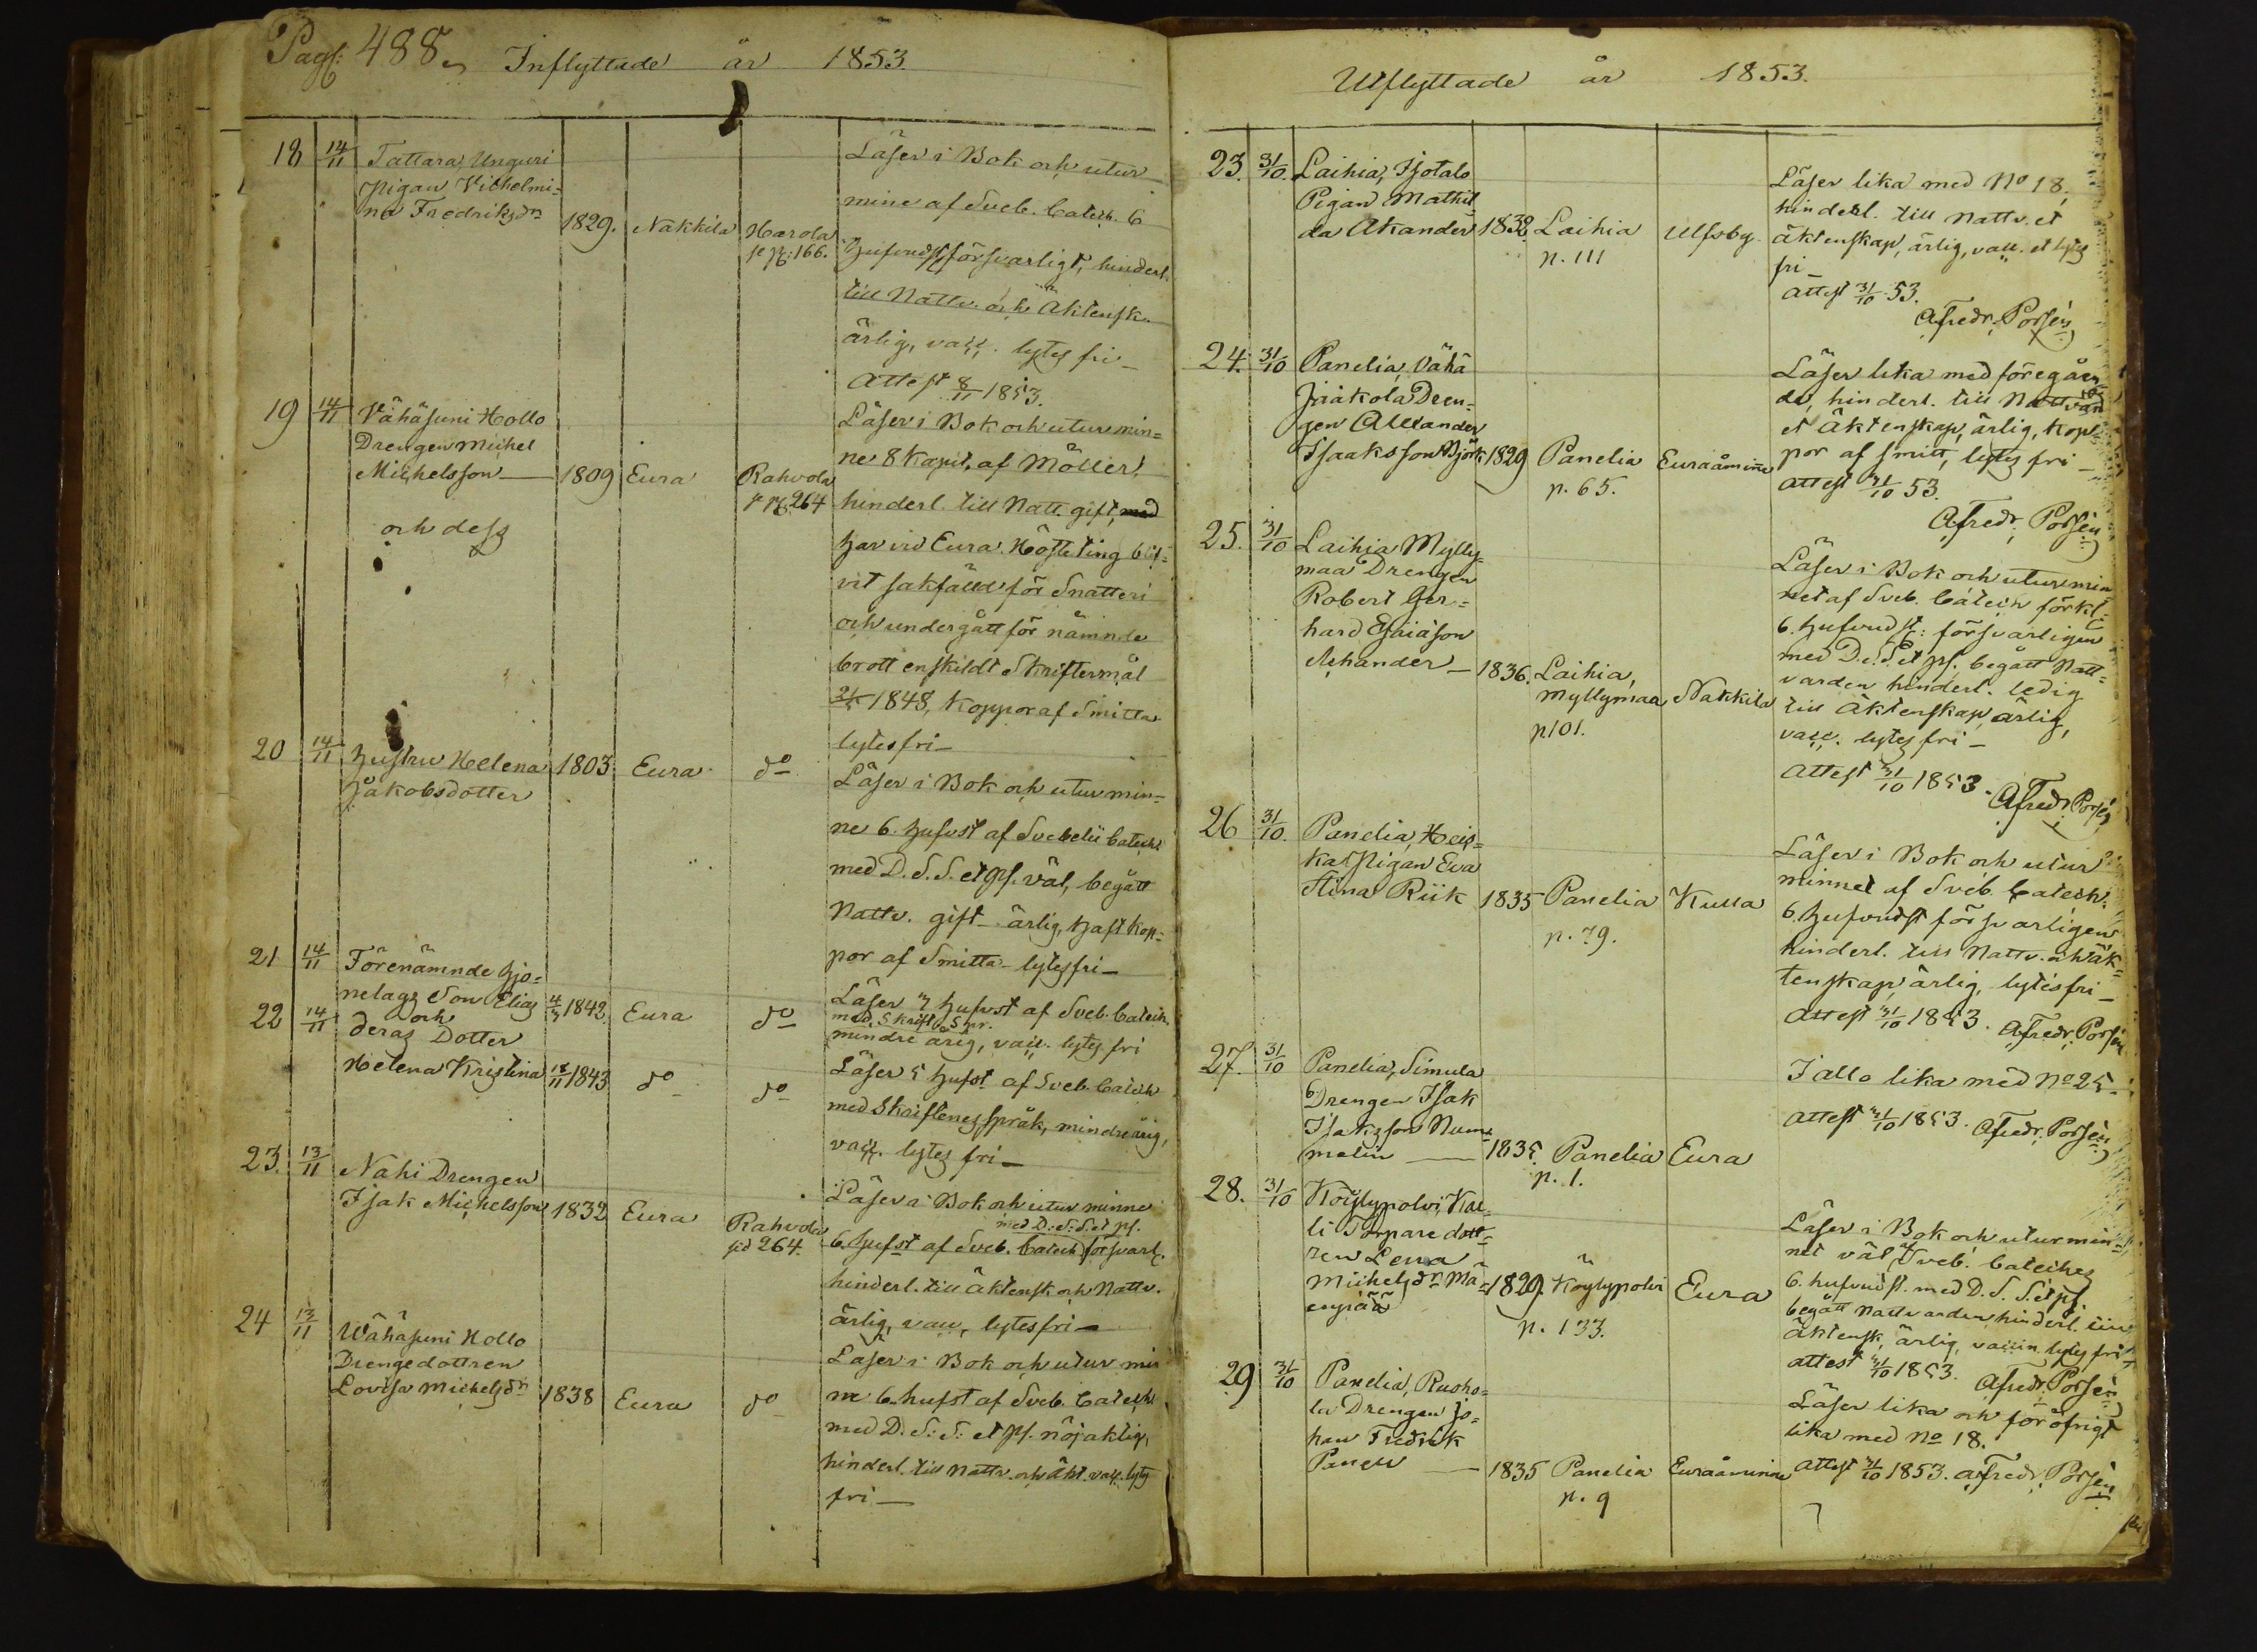 Pag: 488.
Inflyttade år 1853.
18 14/11 Tattara, Unguri
Pigan Vilhelmi=
na Fredriksdr 1829. Nakkila Harola
se pg: 166.
Läser i Bok och utur
minne af Sveb. Catech. 6
Hufvudst försvarligt, hinderl.
till Nattv. och Äktensk.
ärlig, vacc. lytes fri
Attest 8/11 1853.
19 14/11 Vähäsuni Hollo
Drengen Michel
Michelsson 1809 Eura Rahvola
se pg. 264
och dess
Läser i Bok och utur min=
ne 8 Kapit. af Möller,
hinderl. till Natt. gift, med
har vid Eura Hösteting blif=
vit sakfälld för Snatteri
och undergått för nämnde
brott enskildt Skriftermål
1848, Koppor af Smitta
lytesfri
20 14/11 hustru Helena 1803 Eura do
Jakobsdotter
Läser i Bok och utur min=
ne 6. hufvst af Svebelii Catech
med D. S. S. et ps. väl, begått
Nattv. gift ärlig, haft kop=
por af Smitta lytesfri
21 14/11 Förenämnde hjo=
nelags Son Elias 1842. Eura do
och
Läser 3 hufvst af Sveb. Catech.
med Skrift Spr.
mindre årig, vacc. lytes fri
22 14/11 deras Dotter
Helena Kristina 1843 do do
Läser 5 hufst af Sveb. Catech
med Skriftenes språk, mindreårig,
vacc. lytes fri
23. 13/11 Nähi Drengen
Isak Michelsson 1832 Eura Rahvola
sid 264.
Läser i Bok och utur minne
med D. S. S. et ps.
6. hufst af Sveb. Catech försvarl.
hinderl. till Äktensk och Nattv.
ärlig, vacc, lytesfri
24 13/11 Wähäsuni Hollo
Drengedottren
Lovisa Michelsdr 1838 Eura do
Läser i Bok och utur min
ne 6 hufst af Sveb. Catech
med D. S. S. et ps. nöjaktig,
hinderl. till Nattv. och Äkt. vacc. lytes
fri
Utflyttade år 1853.
23. 31/10. Laihia, Isotalo
Pigan Mathil=
da Akander 1832 Laihia Ulfsby
p. 111
Läser lika med No 18,
hinderl. till Nattv. et
äktenskap, ärlig, vacc. et lytes
fri
Attest 31/10 53.
A Fredr. Porsén
24. 31/10 Panelia, Vähä
Jaakola Dren=
gen Alexander
Isaaksson Björk 1829 Panelia Euraåminne
p. 65.
Läser lika med föregåen=
de, hinderl. till Nattvard
et Äktenskap, ärlig, Kop=
por af smitt, lytes fri
attest 31/10 53.
A Fredr. Porsén
25. 31/10 Laihia Mylly=
maa Drengen
Robert Ger=
hard Esaiason
Achander 1836. Laihia,
Myllymaa Nakkila
p 101.
Läser i Bok och utur min=
net af Sveb. Catech förkl.
6. hufvudst: försvarligen
med D. S. S. et ps. begått Natt=
varden hinderl. ledig
till Äktenskap, ärlig,
vacc. lytes fri
Attest 31/10 1853.
A Fredr. Porsén
26 31/10. Panelia, Heis=
ka Pigan Eva
Stina Riik 1835 Panelia Kulla
p. 79.
Läser i Bok och utur
minnet af Sveb. Catech.
6. hufvudst försvarligen
hinderl. till Nattv. och äk=
tenskap, ärlig, lytesfri
Attest 31/10 1853. A Fredr. Porsén
27. 31/10 Panelia, Simula
Drengen Isak
Isaksson Num=
melin 1835. Panelia Eura
p. 1.
I allo lika med No 25.
Attest 31/10 1853. A Fredr. Porsén
28. 31/10 Köylypolvi, Kal=
li Torpare dott=
ren Lena
Michelsdr Mä=
enpää 1829. Köylypolvi Eura
p. 133.
Läser i Bok och utur min=
net väl af Sveb. Cateches
6. hufvudst. med D. S. S. et ps.
begått Nattvarden hinderl. till
Äktensk, ärlig, vaccin lytes fri
attest 31/10 1853. A Fredr. Porsén
29 31/10 Panelia, Ruoho=
la Drengen Jo=
han Fredrik
Panell 1835 Panelia Euraåminne
p. 9
Läser lika och för öfrigt
lika med No 18.
Attest 31/10 1853. A Fredr. Porsén